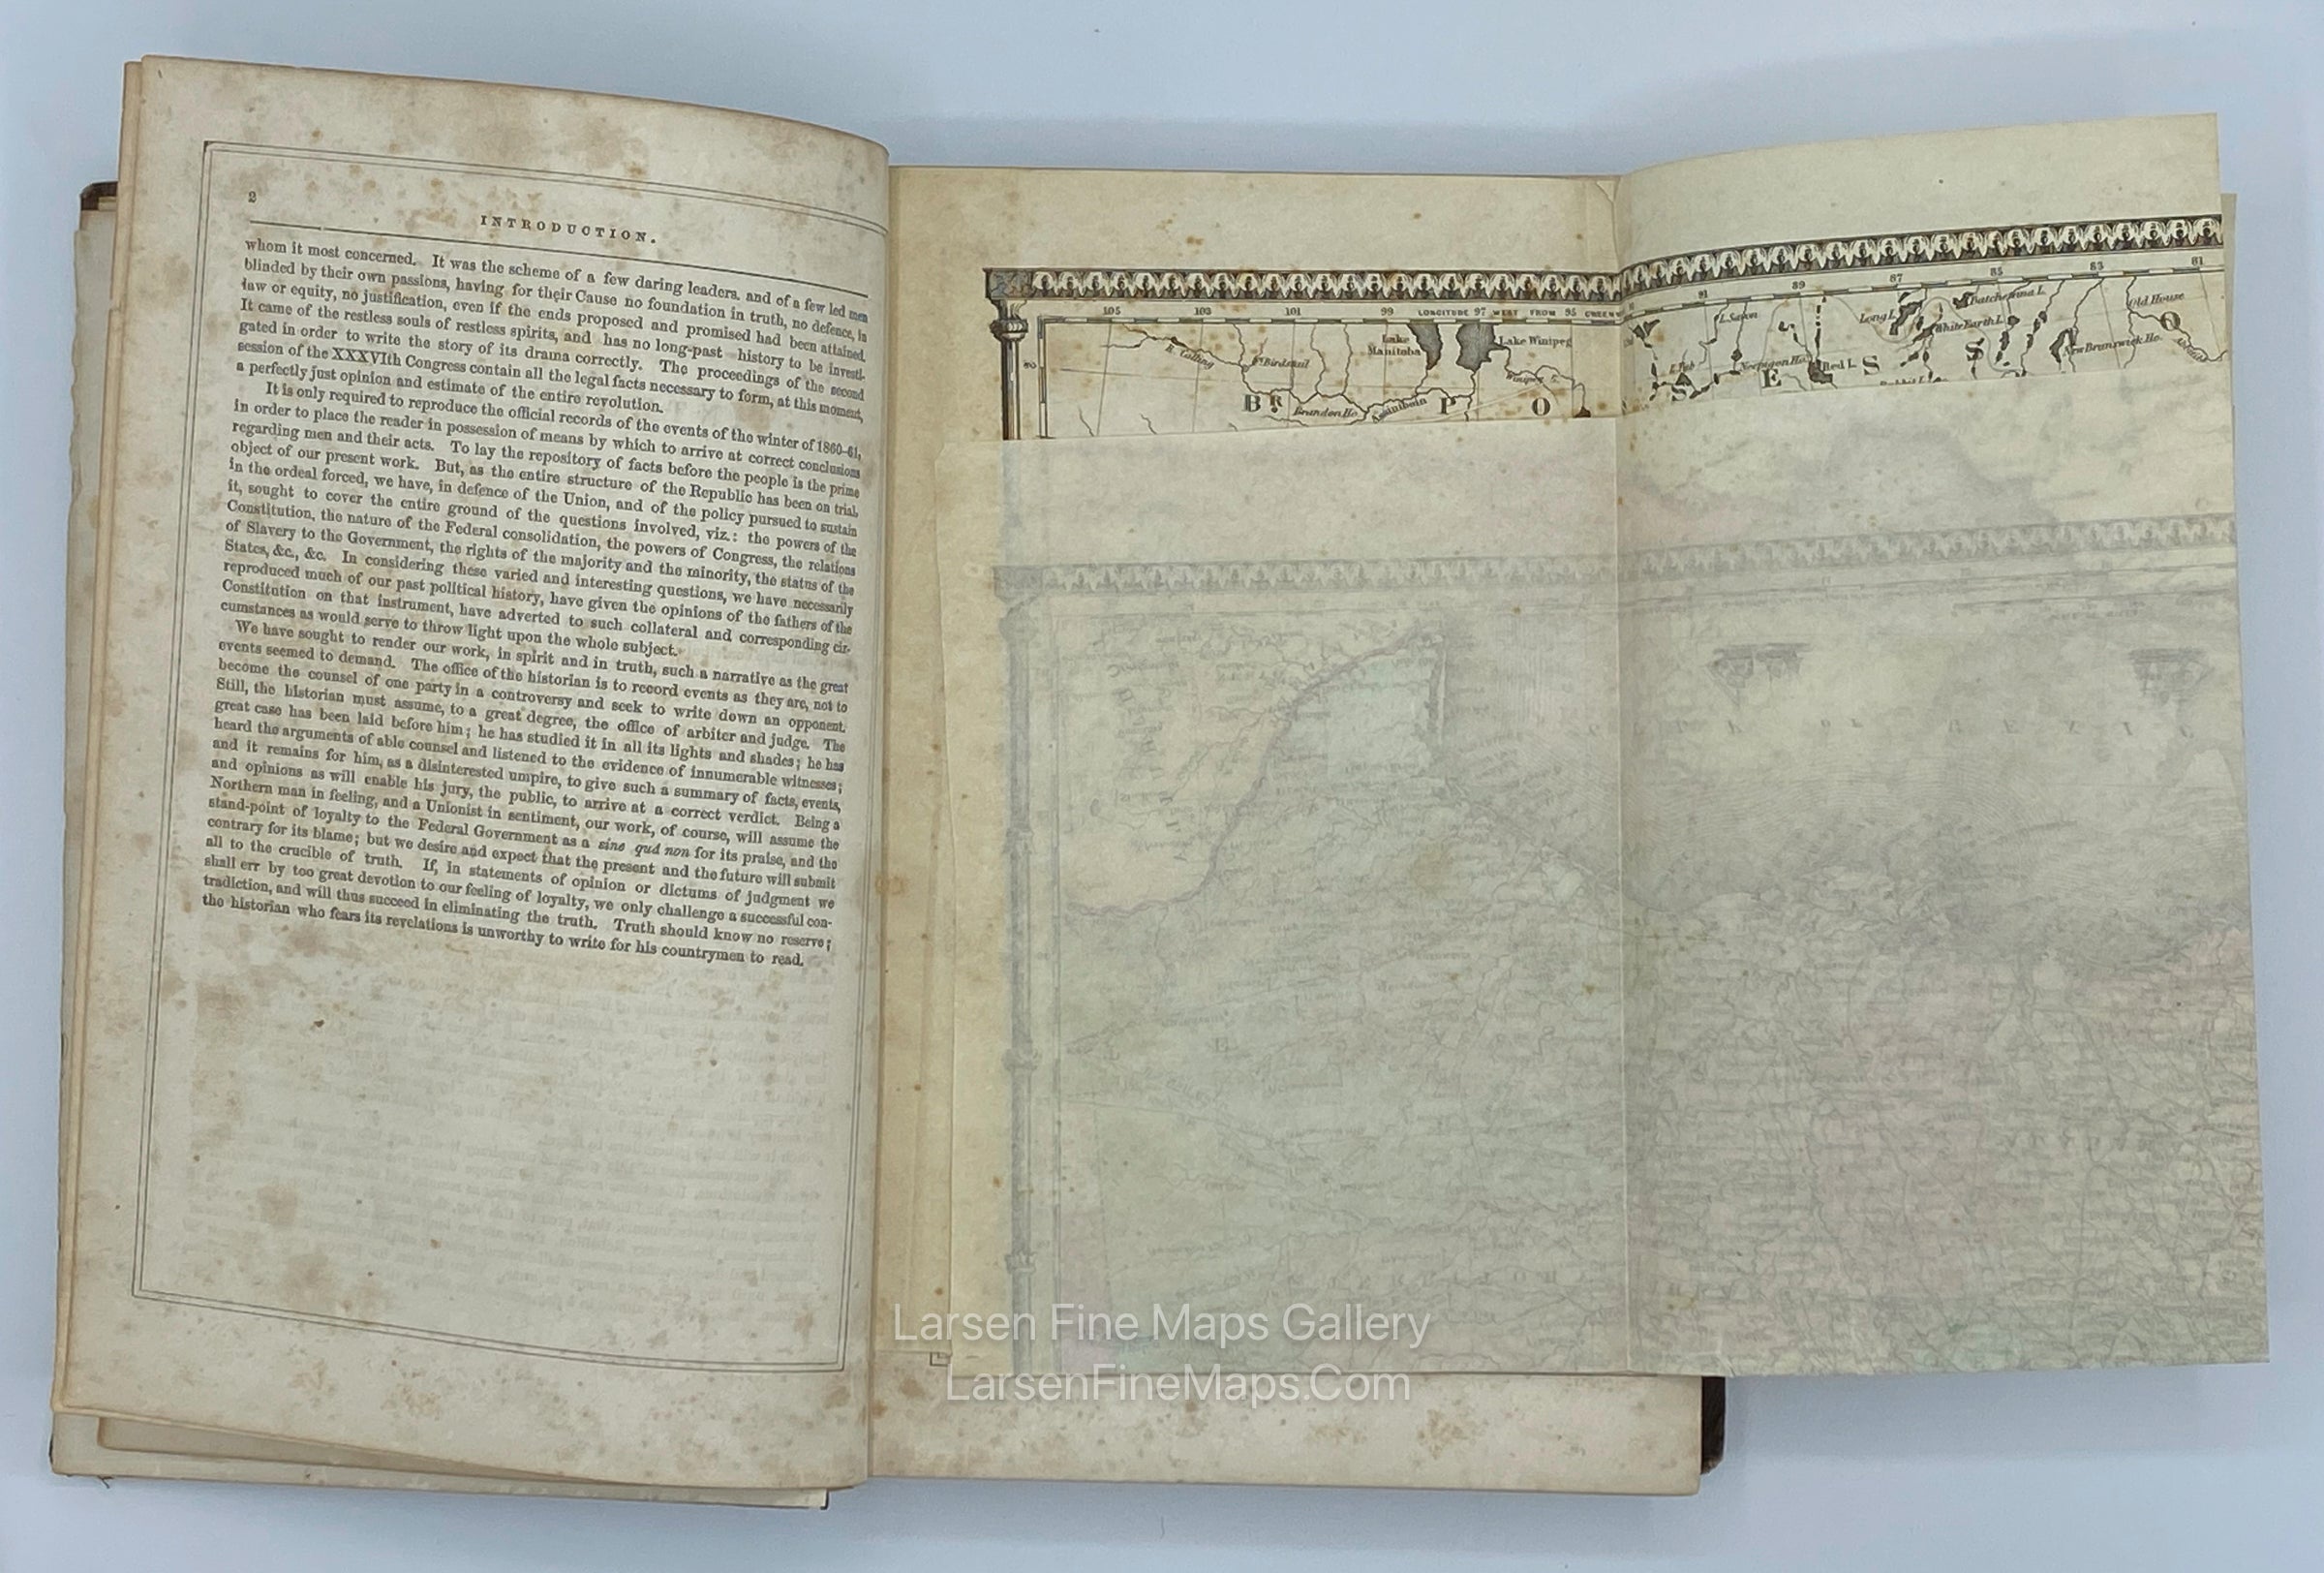 2
INTRODUCTION.
whom it most concerned. It was the scheme of a few daring leaders. and of a few led men
blinded by their own passions, having for their Cause no foundation in truth, no defence, in
law or equity, no justification, even if the ends proposed and promised had been attained.
It came of the restless souls of restless spirits, and has no long-past history to be investi-
gated in order to write the story of its drama correctly. The proceedings of the second
session of the XXXVIth Congress contain all the legal facts necessary to form, at this moment,
a perfectly just opinion and estimate of the entire revolution.
It is only required to reproduce the official records of the events of the winter of 1860-61,
in order to place the reader in possession of means by which to arrive at correct conclusions
regarding men and their acts. To lay the repository of facts before the people is the prime
object of our present work. But, as the entire structure of the Republic has been on trial,
in the ordeal forced, we have, in defence of the Union, and of the policy pursued to sustain
it, sought to cover the entire ground of the questions involved, viz.: the powers of the
Constitution, the nature of the Federal consolidation, the powers of Congress, the relations
of Slavery to the Government, the rights of the majority and the minority, the status of the
States, &c., &c. In considering these varied and interesting questions, we have necessarily
reproduced much of our past political history, have given the opinions of the fathers of the
Constitution on that instrument, have adverted to such collateral and corresponding cir-
cumstances as would serve to throw light upon the whole subject.
We have sought to render our work, in spirit and in truth, such a narrative as the great
events seemed to demand. The office of the historian is to record events as they are, not to
become the counsel of one party in a controversy and seek to write down an opponent.
Still, the historian must assume, to a great degree, the office of arbiter and judge. The
great case has been laid before him; he has studied it in all its lights and shades; he has
heard the arguments of able counsel and listened to the evidence of innumerable witnesses;
and it remains for him, as a disinterested umpire, to give such a summary of facts, events,
and opinions as will enable his jury, the public, to arrive at a correct verdict. Being a
Northern man in feeling, and a Unionist in sentiment, our work, of course, will assume the
stand-point of loyalty to the Federal Government as a sine quâ non for its praise, and the
contrary for its blame; but we desire and expect that the present and the future will submit
all to the crucible of truth. If, in statements of opinion or dictums of judgment we
shall err by too great devotion to our feeling of loyalty, we only challenge a successful con-
tradiction, and will thus succeed in eliminating the truth. Truth should know no reserve;
the historian who fears its revelations is unworthy to write for his countrymen to read.
105 103 101 99 LONGITUDE 97 WEST FROM 95 GREENW
91 89 87 85 83 81
Lake Manitoba
Lake Winipeg
Birdstail
Brandon Ho.
BR P O S S E S S O
Long L.
Batchewana L.
White Earth L.
Old House
New Brunswick Ho.
Red L.
Larsen Fine Maps Gallery
LarsenFineMaps.Com